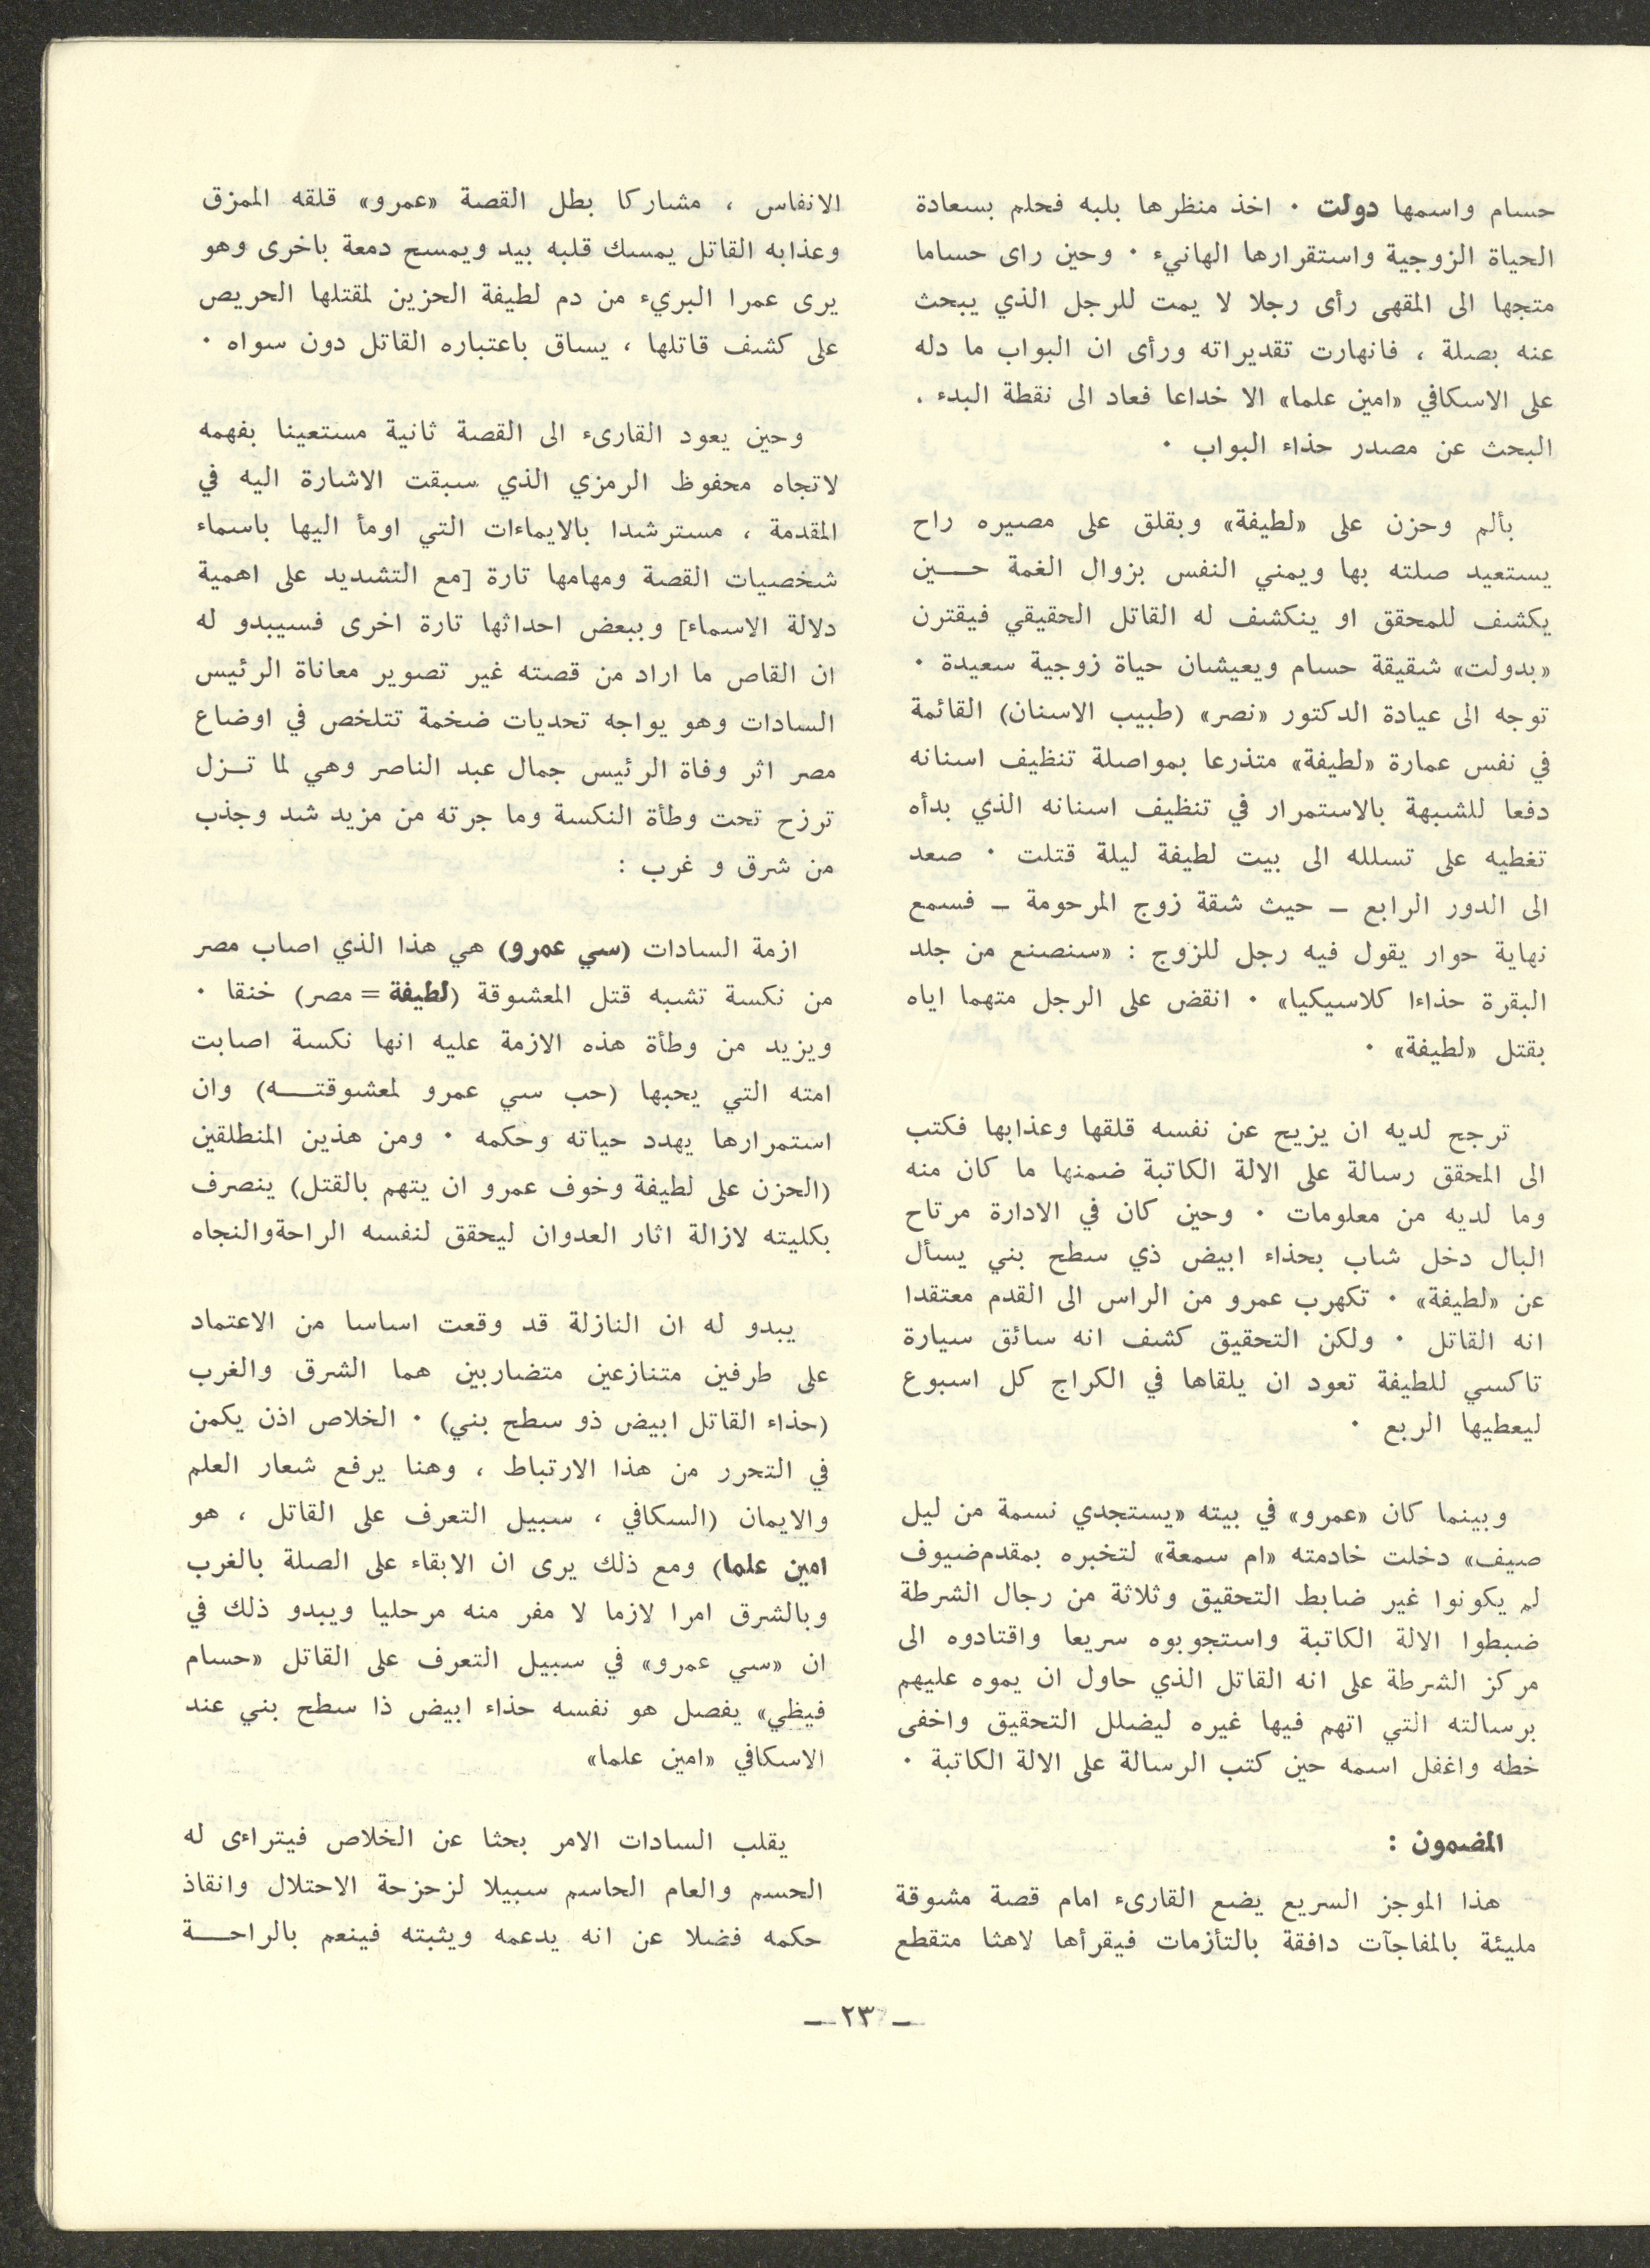 حسام واسمها دولت ٠ اخذ منظرها بلبه فحلم بسعادة
الحياة الزوجية واستقرارها الهانيء ٠ وحين راى حساما
متجها الى المقهى رأى رجلا لا يمت للرجل الذي يبحث
عنه بصلة ، فانهارت تقديراته ورأى ان البواب ما دله
على الاسكافي «امين علما» الا خداعا فعاد الى نقطة البدء .
البحث عن مصدر حذاء البواب ٠
بألم وحزن على «لطيفة» وبقلق على مصيره راح
يستعيد صلته بها ويمني النفس بزوال الغمة حـــين
يكشف للمحقق او ينكشف له القاتل الحقيقي فيقترن
«بدولت» شقيقة حسام ويعيشان حياة زوجية سعيدة ٠
توجه الى عيادة الدكتور «نصر» (طبيب الاسنان) القائمة
في نفس عمارة «لطيفة» متذرعا بمواصلة تنظيف اسنانه
دفعا للشبهة بالاستمرار في تنظيف اسنانه الذي بدأه
تغطيه على تسلله الى بيت لطيفة ليلة قتلت ٠ صعد
الى الدور الرابع ـ حيث شقة زوج المرحومة ـ فسمع
نهاية حوار يقول فيه رجل للزوج : «سنصنع من جلد
البقرة حذاءا كلاسيكيا» ٠ انقض على الرجل متهما اياه
بقتل «لطيفة» ٠
ترجح لديه ان يزيح عن نفسه قلقها وعذابها فكتب
الى المحقق رسالة على الالة الكاتبة ضمنها ما كان منه
وما لديه من معلومات ٠ وحين كان في الادارة مرتاح
البال دخل شاب بحذاء ابيض ذي سطح بني يسأل
عن «لطيفة» ٠ تكهرب عمرو من الراس الى القدم معتقدا
انه القاتل ٠ ولكن التحقيق كشف انه سائق سيارة
تاكسي للطيفة تعود ان يلقاها في الكراج كل اسبوع
ليعطيها الربع ٠
وبينما كان «عمرو» في بيته «يستجدي نسمة من ليل
صيف» دخلت خادمته «ام سمعة» لتخبره بمقدم ضيوف
لم يكونوا غير ضابط التحقيق وثلاثة من رجال الشرطة
ضبطوا الالة الكاتبة واستجوبوه سريعا واقتادوه الى
مركز الشرطة على انه القاتل الذي حاول ان يموه عليهم
برسالته التي اتهم فيها غيره ليضلل التحقيق واخفى
خطه واغفل اسمه حين كتب الرسالة على الالة الكاتبة ٠
المضمون :
هذا الموجز السريع يضع القارىء امام قصة مشوقة
مليئة بالمفاجآت دافقة بالتأزمات فيقرأها لاهثا متقطع
الانفاس ، مشاركا بطل القصة «عمرو» قلقه الممزق
وعذابه القاتل يمسك قلبه بيد ويمسح دمعة باخرى وهو
يرى عمرا البريء من دم لطيفة الحزين لمقتلها الحريص
على كشف قاتلها ، يساق باعتباره القاتل دون سواه ٠
وحين يعود القارىء الى القصة ثانية مستعينا بفهمه
لاتجاه محفوظ الرمزي الذي سبقت الاشارة اليه في
المقدمة ، مسترشدا بالايماءات التي اومأ اليها باسماء
شخصيات القصة ومهامها تارة [مع التشديد على اهمية
دلالة الاسماء] وببعض احداثها تارة اخرى فسيبدو له
ان القاص ما اراد من قصته غير تصوير معاناة الرئيس
السادات وهو يواجه تحديات ضخمة تتلخص في اوضاع
مصر اثر وفاة الرئيس جمال عبد الناصر وهي لما تــزل
ترزح تحت وطأة النكسة وما جرته من مزيد شد وجذب
من شرق و غرب :
ازمة السادات (سي عمرو) هي هذا الذي اصاب مصر
من نكسة تشبه قتل المعشوقة (لطيفة = مصر) خنقا ٠
ويزيد من وطأة هذه الازمة عليه انها نكسة اصابت
امته التي يحبها (حب سي عمرو لمعشوقتـــه) وان
استمرارها يهدد حياته وحكمه ٠ ومن هذين المنطلقين
(الحزن على لطيفة وخوف عمرو ان يتهم بالقتل) ينصرف
بكليته لازالة اثار العدوان ليحقق لنفسه الراحة والنجاه
يبدو له ان النازلة قد وقعت اساسا من الاعتماد
على طرفين متنازعين متضاربين هما الشرق والغرب
(حذاء القاتل ابيض ذو سطح بني) ٠ الخلاص اذن يكمن
في التحرر من هذا الارتباط ، وهنا يرفع شعار العلم
والايمان (السكافي ، سبيل التعرف على القاتل ، هو
امين علما) ومع ذلك يرى ان الابقاء على الصلة بالغرب
وبالشرق امرا لازما لا مفر منه مرحليا ويبدو ذلك في
ان «سي عمرو» في سبيل التعرف على القاتل «حسام
فيظي» يفصل هو نفسه حذاء ابيض ذا سطح بني عند
الاسكافي «امين علما»
يقلب السادات الامر بحثا عن الخلاص فيتراءى له
الحسم والعام الحاسم سبيلا لزحزحة الاحتلال وانقاذ
حكمه فضلا عن انه يدعمه ويثبته فينعم بالراحـــة
ـ ٢٣ ـ